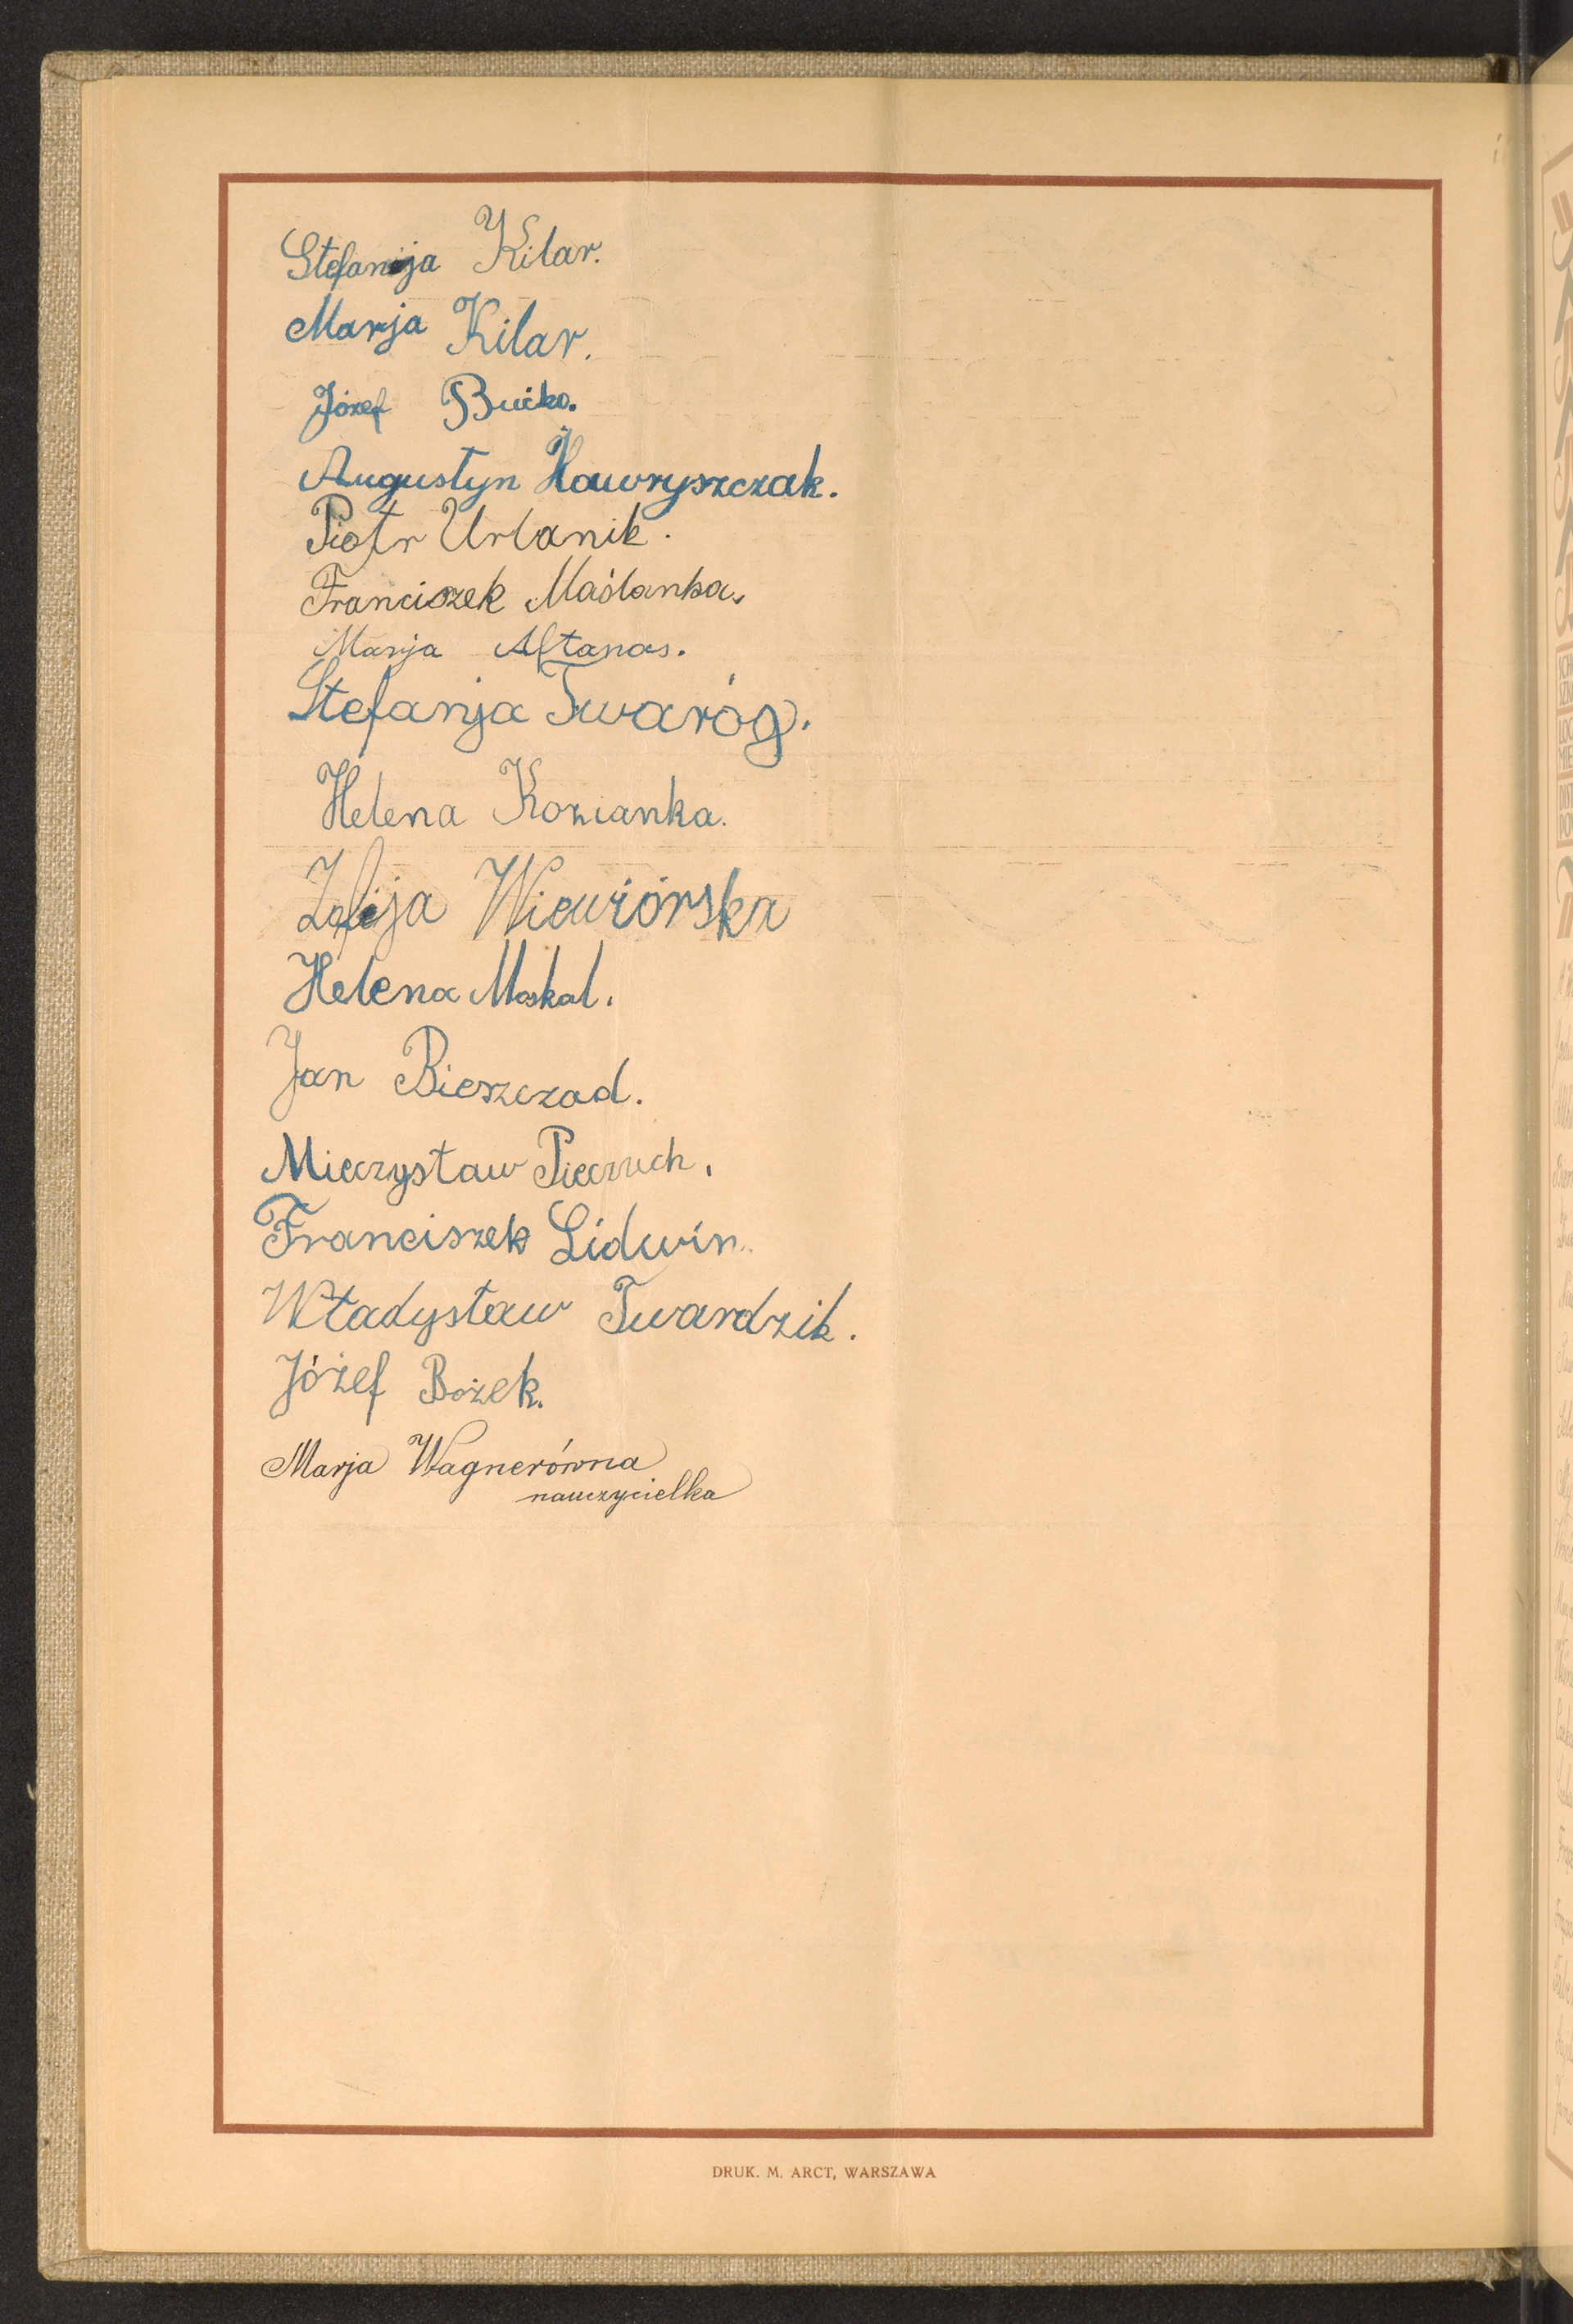 Stefanija Kilar.
Marja Kilar.
Józef Bućko.
Augustyn Hawryszczak.
Piotr Urbanik.
Franciszek Maślanka.
Marja Aftanas.
Stefanja Twaróg.
Helena Kozianka.
Zofija Wiewiórska
Helena Moskal.
Jan Bieszczad.
Mieczysław Pieczuch.
Franciszek Lidwin.
Władysław Twardzik.
Józef Bożek.
Marja Wagnerówna
nauczycielka
DRUK. M. ARCT, WARSZAWA